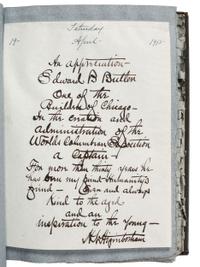 Saturday
19- April 1915
An appreciation -
Edward B Butler
One of the
Builders of Chicago -
In the creation and
Administration of the
Worlds Columbian Exposition
a Captain -
For more than thirty years he
has been my friend Humanity's
friend - and always
Kind to the aged
and an
inspiration to the Young -